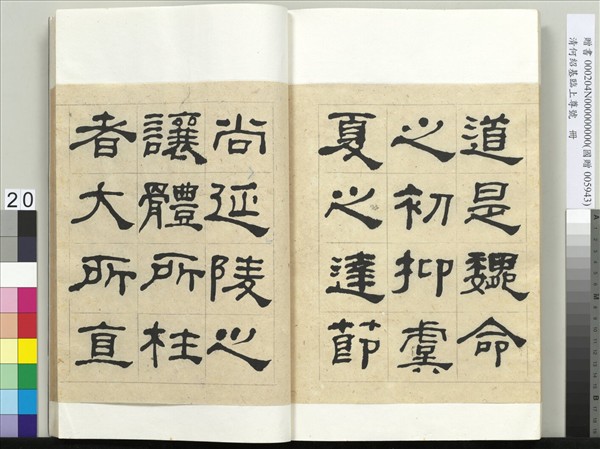 贈書 000204N000000000(國贈 005943)
清何紹基臨上尊號 冊
道是魏命
之初抑虞
夏之達節
尚延陵之
讓體所枉
者大所直
20
A
M
B